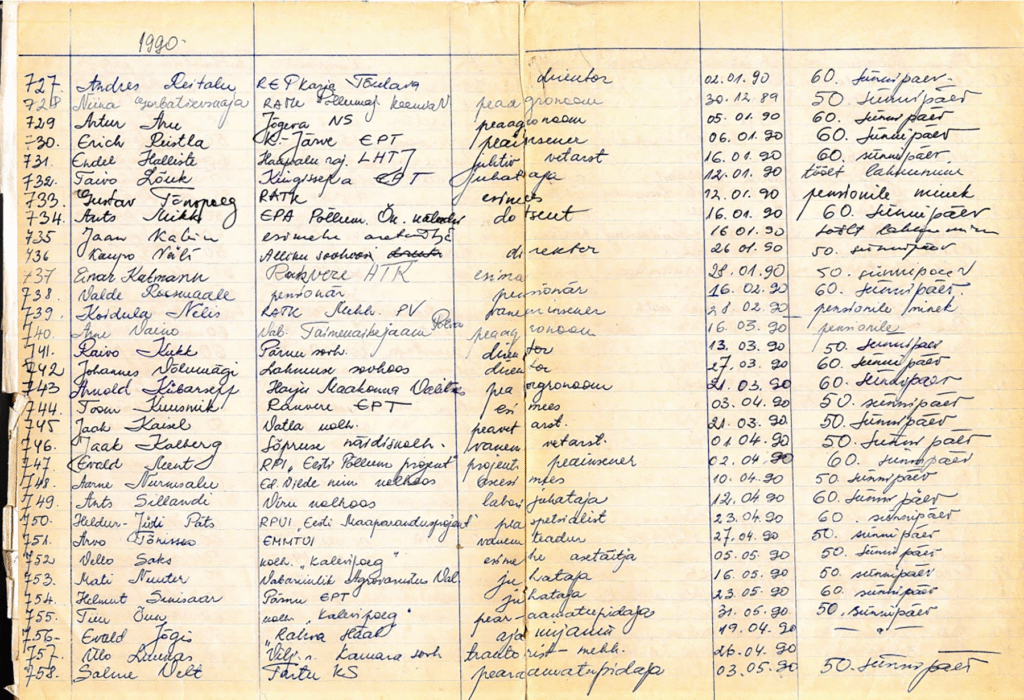 1990.
727. Andres Reitalu REPkarja Tõulava direktor 02.01.90 60. sünnipäev.
728 Niina RATK Põllumaj. peaagronoom 30.12.89 50. sünnipäev
729 Artur Aru Jõgeva NS peaagronoom 05.01.90 60. sünnipäev.
-30. Erich Ristla K.-Järve EPT peainsener 06.01.90 60. sünnipäev
731. Endel Halliste Haapsalu raj. LHTJ juhtiv vetarst 16.01.90 60. sünnipäev.
732. Taivo Lõuk Kingissepa EPT juhataja 12.01.90 töölt lahkumine
733. Gustav Tõnspoeg RATK esimees 12.01.90 pensionile minek
734. Ants Mikk EPA Põllum. Ök. dotsent 16.01.90 60. sünnipäev
735 Jaan Kabin esimehe asetäitja 16 01.90 töölt
736 Kaupo Nõlt sovhoos direktor 26 01.90 50. sünnipäev
737 Einar Katmann Rakvere ATK 28.01.90 50. sünnipäev
738. Valde Roosmaale pensionär pensionär 16.02.90 60. sünnipäev.
739. Koidula Nilis RATK Mehh. PV insener 28 02.90 pensionile minek
740. Vaino Vab. Taimekaitsejaam Põlva peaagronoom 16.03.90 pensionile
741. Raivo Kukk Pärnu sovh. direktor 13.03.90 50. sünnipäev
742 Johannes Võlumägi Lahmuse sovhoos direktor 27.03.90 60. sünnipäev
743 Arnold Kübarsepp Harju Maakonna Valitsus peaagronoom 21.03.90 60. sünnipäev
744. Toom Kuusmik Rakvere EPT esimees 03.04.90 50. sünnipäev
745 Jaak Kaisel Vatla kolh. peavet arst. 21.03.90 50. sünnipäev
746. Jaak Kalberg Sõpruse näidiskolh. vanem vetarst. 01.04.90 50. sünnipäev
747. Evald Ment RPI "Eesti Põllum projekt" projekti peainsener 02.04.90 60. sünnipäev
748. Aarne Nurmsalu Ed. Viide nim kolhoos esimees 10.04.90 50. sünnipäev
749. Ants Sillandi Viru kolhoos labori juhataja 12.04.90 60. sünnipäev
750. Heldur-Jüdi Päts RPUI "Eesti Maaparandusprojekt" peaspetsialist 23.04.90 60. sünnipäev
751. Arvo Tõnisson EMMTUI vanem teadur 27.04.90 50. sünnipäev
752 Vello Saks kolh. "Kalevipoeg" esimehe asetäitja 05.05.90 50. sünnipäev
753. Mati Nuuter Vabariiklik Agrovarustus Val. juhataja 16.05.90 50. sünnipäev
754. Helmut Sinisaar Pärnu EPT juhataja 23.05.90 60. sünnipäev
755. Tiiu Õun kolh "Kalevipoeg" pearaamatupidaja 31.05.90 50. sünnipäev
756- Evald Jõgis "Rahva Hääl" ajakirjanik 19.04.90 — " —
757. Ülo Vilj. r. Kamara sovh traktorist-mehh. 26.04.90
758. Salme Velt Tartu KS pearaamatupidaja 03.05.90 50. sünnipäev